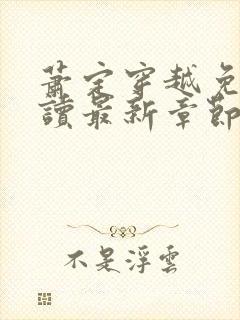 萧定穿越免
讀最新章節
不是浮雲